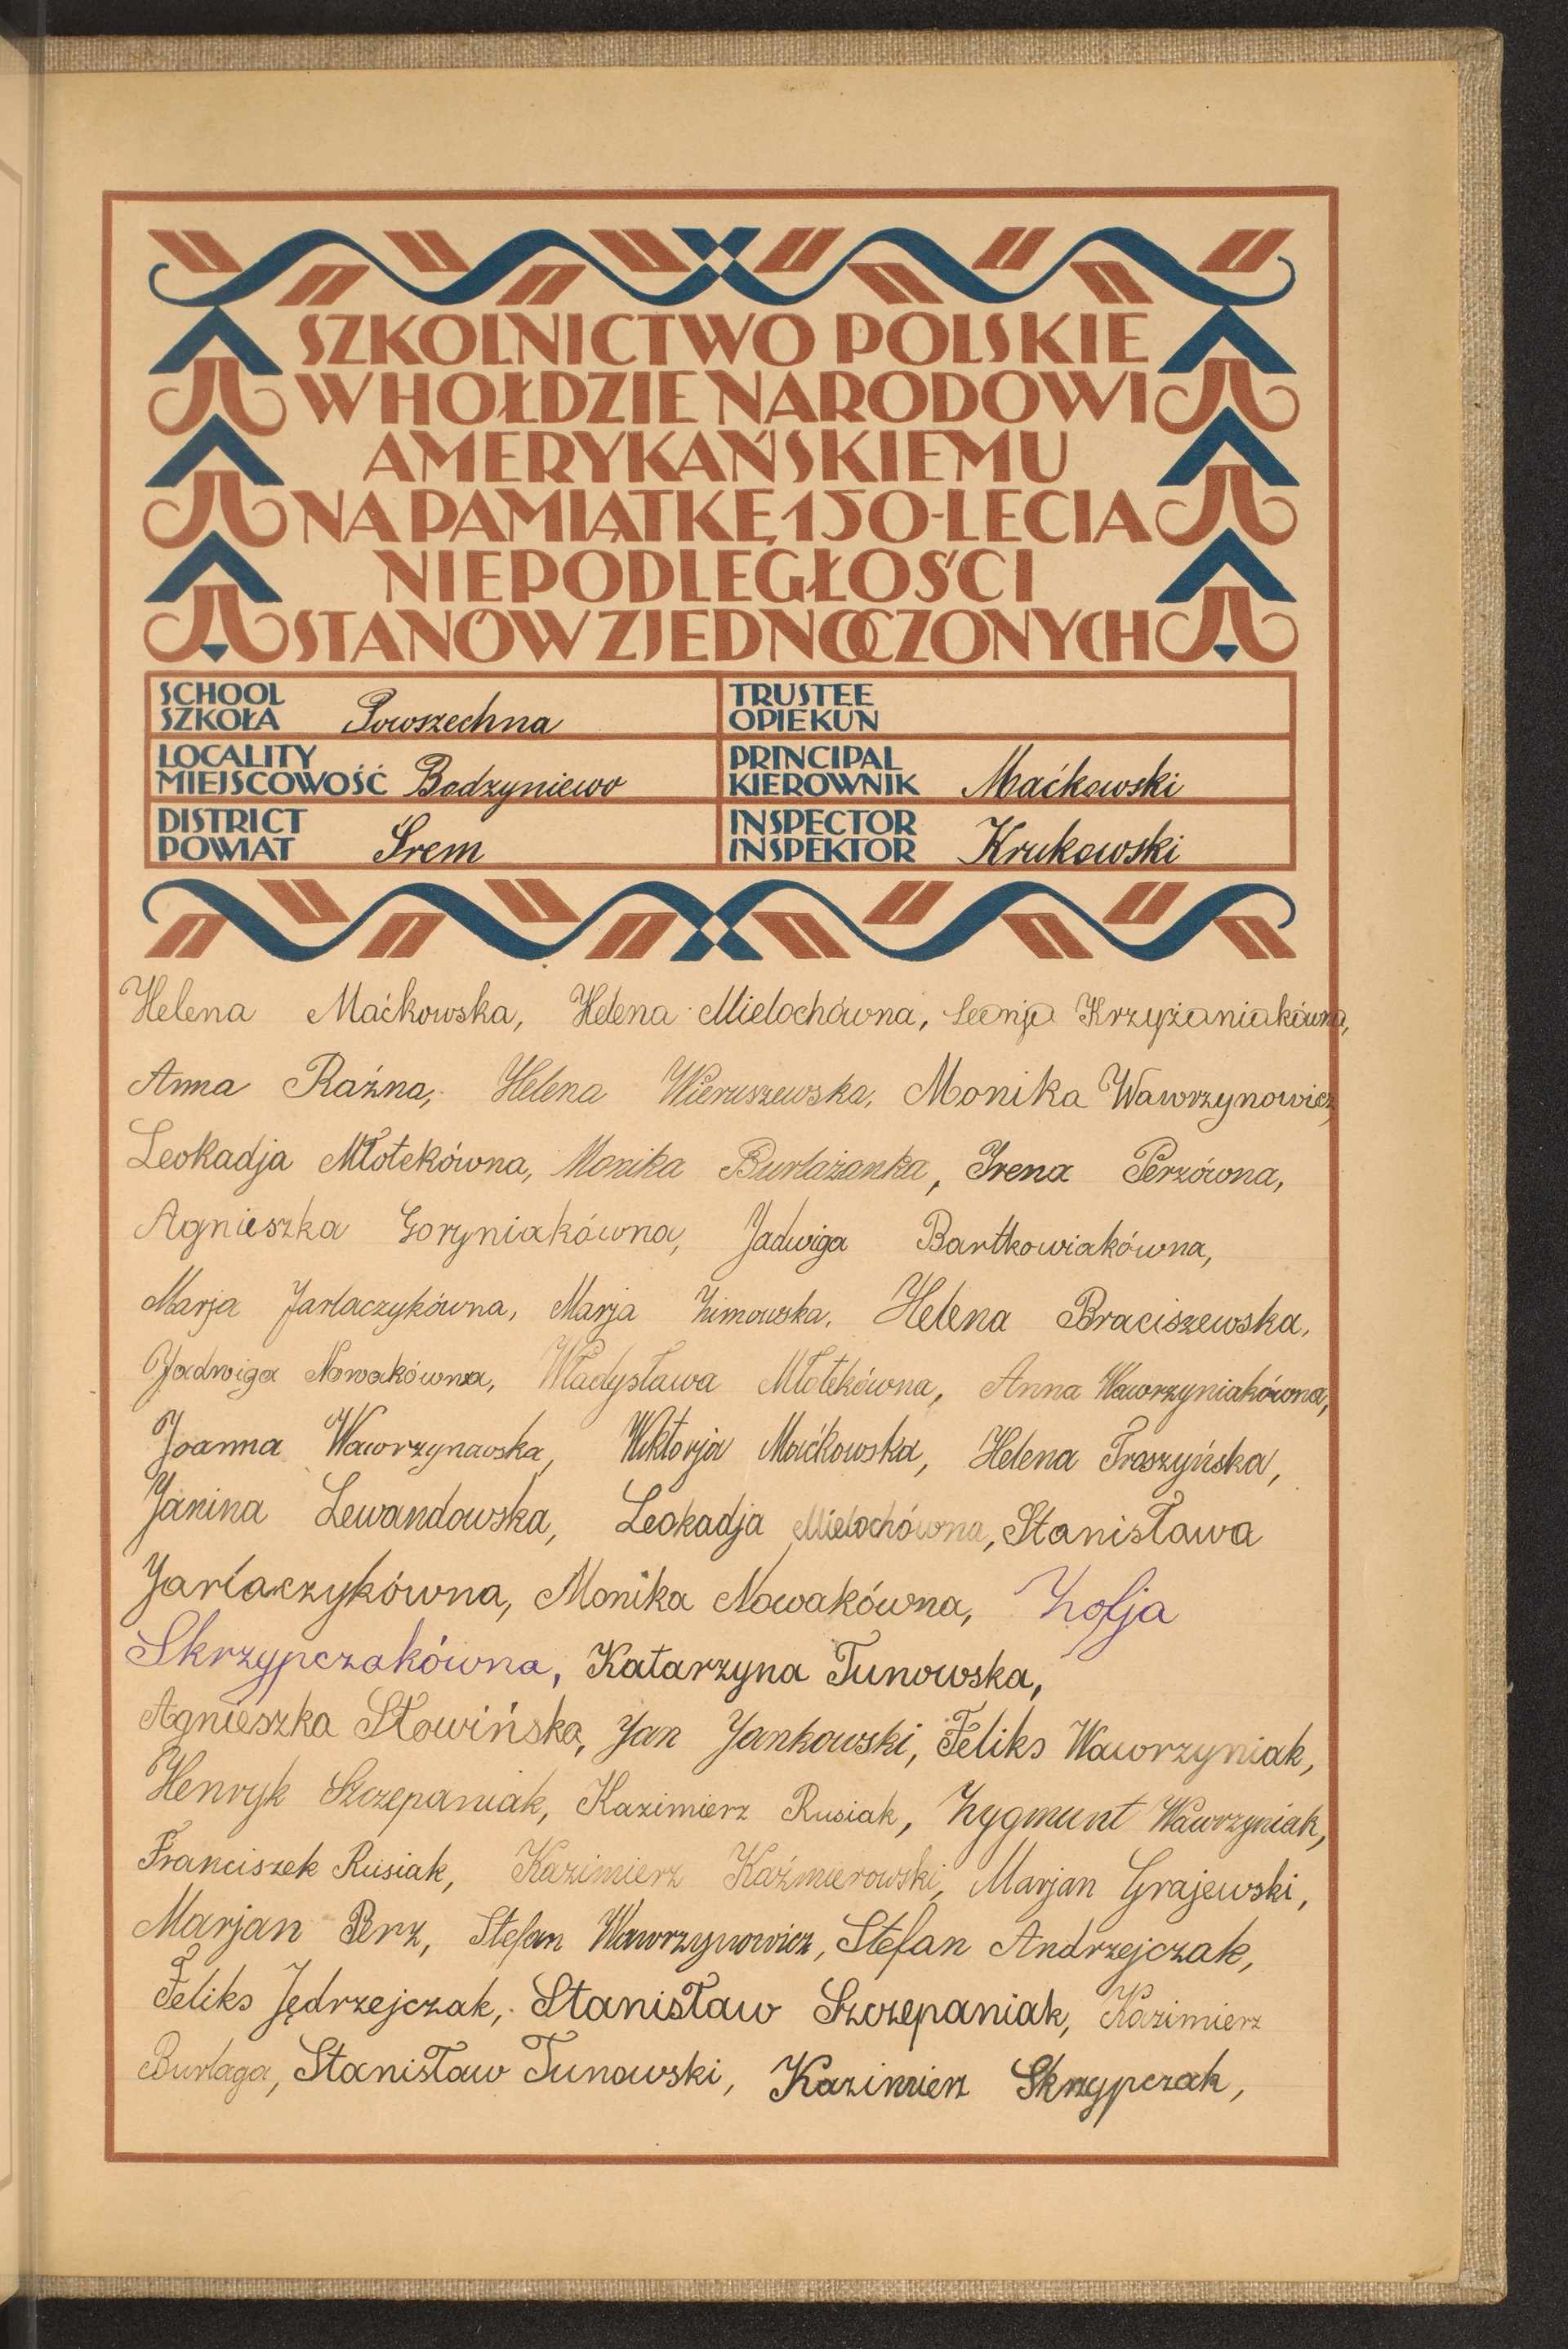 SZKOLNICTWO POLSKIE
W HOŁDZIE NARODOWI
AMERYKAŃSKIEMU
NA PAMIĄTKĘ 150-LECIA
NIEPODLEGŁOŚCI
STANÓW ZJEDNOCZONYCH
SCHOOL
SZKOŁA Powszechna
TRUSTEE
OPIEKUN
LOCALITY
MIEJSCOWOŚĆ Bodzyniewo
PRINCIPAL
KIEROWNIK Maćkowski
DISTRICT
POWIAT Śrem
INSPECTOR
INSPEKTOR Krukowski
Helena Maćkowska, Helena Mielochówna, Leonja Krzyżaniakówna,
Anna Raźna, Helena Wieruszewska, Monika Wawrzynowicz,
Leokadja Młotekówna, Monika Burlażanka, Irena Perzówna,
Agnieszka Goryniakówna, Jadwiga Bartkowiakówna,
Marja Jarlaczykówna, Marja Zimowska, Helena Braciszewska,
Jadwiga Nowakówna, Władysława Młotekówna, Anna Wawrzyniakówna,
Joanna Wawrzynowska, Wiktorja Maćkowska, Helena Troszyńska,
Janina Lewandowska, Leokadja Mielochówna, Stanisława
Jarlaczykówna, Monika Nowakówna, Zofja
Skrzypczakówna, Katarzyna Tunowska,
Agnieszka Słowińska, Jan Jankowski, Feliks Wawrzyniak,
Henryk Szczepaniak, Kazimierz Rusiak, Zygmunt Wawrzyniak,
Franciszek Rusiak, Kazimierz Kaźmierowski, Marjan Grajewski,
Marjan Perz, Stefan Wawrzynowicz, Stefan Andrzejczak,
Feliks Jędrzejczak, Stanisław Szczepaniak, Kazimierz
Burlaga, Stanisław Tunowski, Kazimierz Skrzypczak,